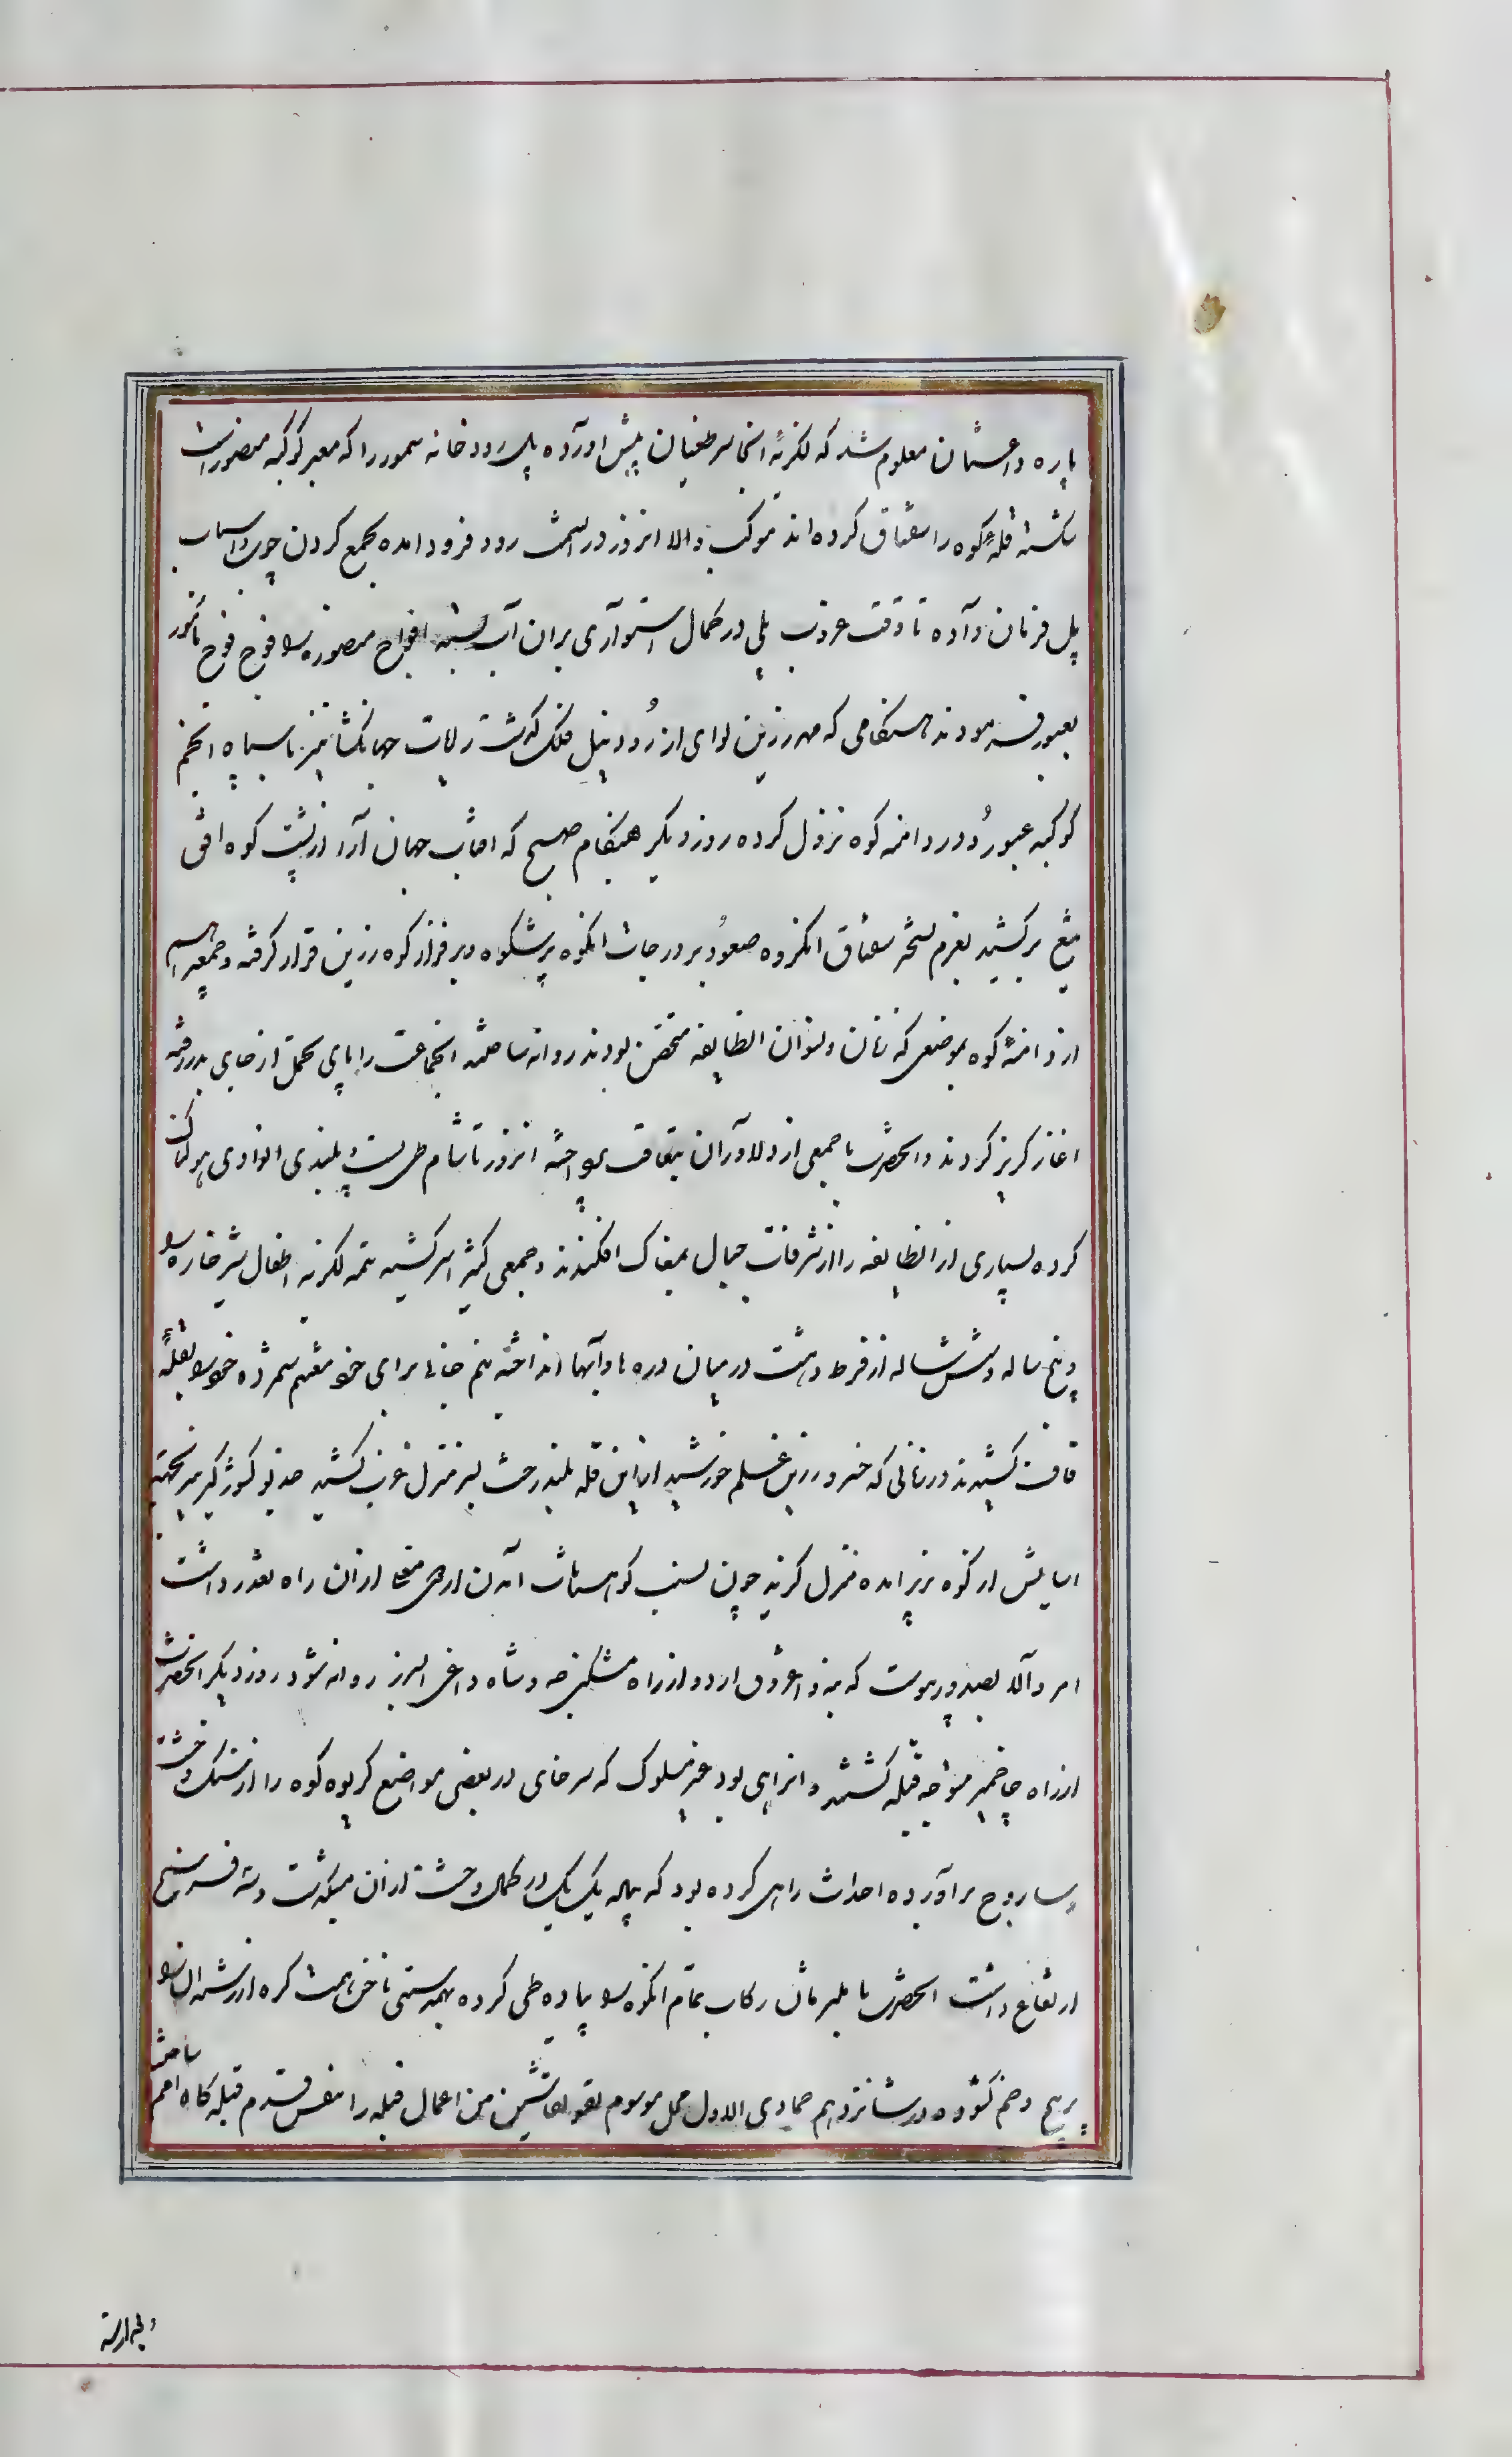 پاره داغستان معلوم شد که لکزیهٔ آنجا سر طغیان پیش اورده پل رودخانه سمور را که معبر کوکبه منصور است
شکسته قلهٔ کوه را سقناق کرده اند موکب والا انروز در اینسمت رود فرود امده بجمع کردن چوب و اسباب
پل فرمان داده تا وقت غروب پلی در کمال استواری بران آب بسته افواج منصوره را فوج فوج مأمور
بعبور فرمودند هنگامی که مهر زرین لوای از رود نیل فلک گذشت رایات جهانگشا نیز با سپاه انجم
کوکبه عبور و در دامنه کوه نزول کرده روز دیگر هنگام صبح که افتاب جهان آرا از پشت کوه افق
تیغ برکشید بعزم تسخیر سقناق انگروه صعود بر درجات انکوه پرشکوه و بر فراز کوه زرین قرار گرفته و جمعی هم
از دامنهٔ کوه بموضعی که زنان و نسوان انطایفه متحصن بودند روانه ساختند انجماعت را پای تحمل از جای بدر رفته
اغاز گریز کردند و انحضرت با جمعی از دلاوران بتعاقب پرداخته انروز تا شام طی پست و بلندی انوادی هولناک
کرده بسیاری از انطایفه را از شرفات جبال بمغاک افکندند و جمعی کثیر اسیر گشته تتمه لکزیه اطفال شیرخاره را
و پنج ساله و شش ساله از فرط دهشت در میان دره ها و آبها انداخته نیم جانی برای خود مغتنم شمرده خود را بقلهٔ
قاف کشیدند در زمانی که خسرو زرین علم خورشید از این قله بلند رخت بسر منزل غرب کشید خدیو کشورگیر نیز بجهته
اسایش از کوه بزیر امده منزل گزید چون بسبب کوهستان آمدن اردوی معلا از ان راه تعذر داشت
امر والا بصدور پیوست که بنه و اغروق اردو از راه مشکنجه و شاه داغی البرز روانه شود روز دیگر انحضرت
از راه چاخمیر متوجه قبله گشتند و انراهی بود غیر مسلوک که سرخای در بعضی مواضع گریوه کوه را از سنگ و خشت
و ساروج براورده احداث راهی کرده بود که پیاده یک یک در کمال وحشت از ان میگذشت و سه فرسخ
ارتفاع داشت انحضرت با ملتزمان رکاب تمام انکوه را پیاده طی کرده بهمدستی ناخن همت گره از رشته ال را
پر پیچ و خم گشوده در شانزدهم جمادی الاول محل موسوم بقولقاشین من اعمال قبله را بفیض قدوم قبله گاه امم ساختند
و بجهة رسته